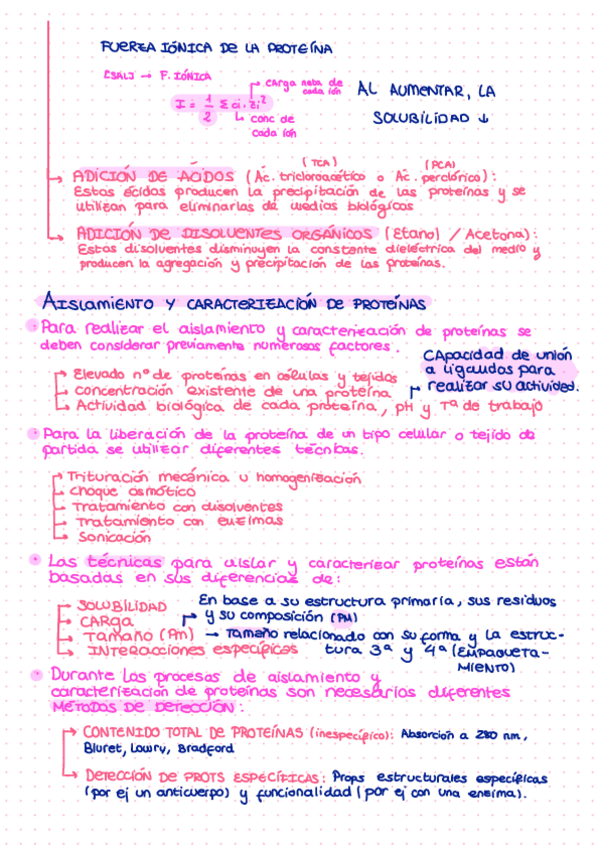 FUERZA IÓNICA DE LA PROTEÍNA
[SAL] → F. IÓNICA
carga neta de cada ión
I = 1/2 Σ ci · zi²
conc de cada ión
AL AUMENTAR, LA
SOLUBILIDAD ↓
(TCA) (PCA)
ADICIÓN DE ÁCIDOS (Ác. tricloroacético o Ác. perclórico):
Estos ácidos producen la precipitación de las proteínas y se
utilizan para eliminarlas de medios biológicos
ADICIÓN DE DISOLVENTES ORGÁNICOS (Etanol / Acetona):
Estos disolventes disminuyen la constante dieléctrica del medio y
producen la agregación y precipitación de las proteínas.
AISLAMIENTO Y CARACTERIZACIÓN DE PROTEÍNAS
· Para realizar el aislamiento y caracterización de proteínas se
deben considerar previamente numerosos factores.
Elevado nº de proteínas en células y tejidos
concentración existente de una proteína
Actividad biológica de cada proteína, pH y Tª de trabajo
Capacidad de unión
a ligandos para
realizar su actividad.
· Para la liberación de la proteína de un tipo celular o tejido de
partida se utilizan diferentes técnicas.
Trituración mecánica u homogenización
choque osmótico
Tratamiento con disolventes
Tratamiento con enzimas
Sonicación
· Las técnicas para aislar y caracterizar proteínas están
basadas en sus diferencias de:
SOLUBILIDAD
CARga
Tamaño (Pm) → Tamaño relacionado con su forma y la estruc-
INTERACCIONES específicas
tura 3ª y 4ª (EMPAQUETA-
MIENTO)
En base a su estructura primaria, sus residuos
y su composición (PM)
· Durante los procesos de aislamiento y
caracterización de proteínas son necesarios diferentes
MÉTODOS DE DETECCIÓN:
CONTENIDO TOTAL DE PROTEÍNAS (inespecífico): Absorción a 280 nm,
Biuret, Lowry, Bradford
DETECCIÓN DE PROTS ESPECÍFICAS: Props estructurales específicas
(por ej un anticuerpo) y funcionalidad (por ej con una enzima).